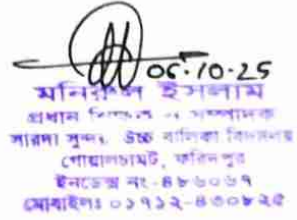 06-10-25
মনিরুল ইসলাম
প্রধান সম্পাদক
সারদা সুন্দরী উচ্চ বালিকা বিদ্যালয়
গোয়ালচামট, ফরিদপুর
ইনডেক্স নং-৪৮৬০৬৭
মোবাইলঃ ০১৭১২-৪৩০৮২৫